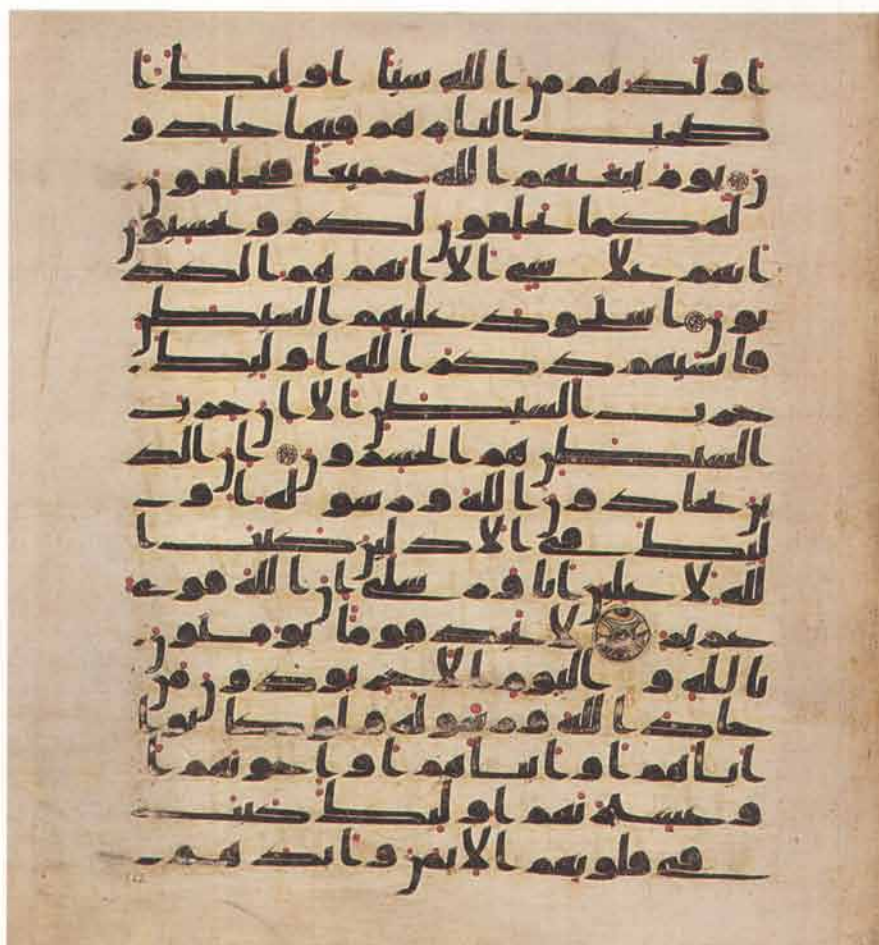 ا ولدهم من الله شيا اوليك ا
صحب النار هم فيها خلدو
ن يوم يبعثهم الله جميعا فيحلفون
له كما يحلفون لكم ويحسبون
انهم على شي الا انهم هم الكذ
بون استحوذ عليهم الشيطن
فانسيهم ذكر الله اوليك
حزب الشيطن الا ان حزب
الشيطن هم الخسرون ان الذ
ين يحادون الله ورسوله او
ليك في الاذلين كتب ا
لله لاغلبن انا ورسلي ان الله قوي
عزيز لا تجد قوما يومنون
بالله واليوم الاخر يوادون من
حاد الله ورسوله ولو كانوا
اباهم او ابناهم او اخونهم ا
و عشيرتهم اوليك كتب
في قلوبهم الايمن وايدهم